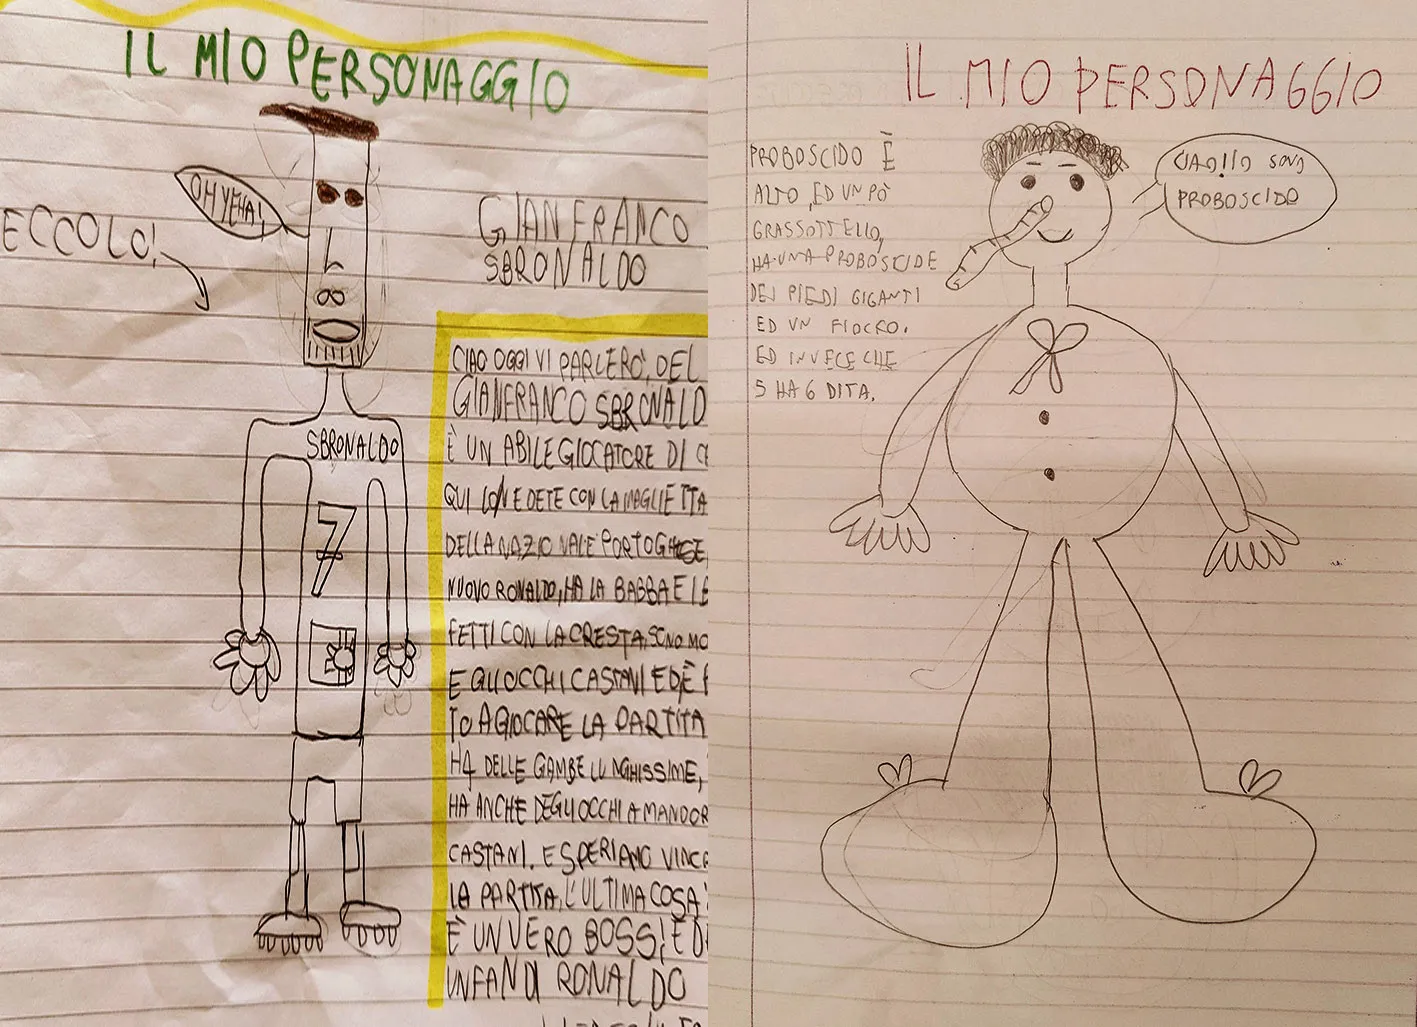 IL MIO PERSONAGGIO
OH YEHA!
ECCOLO!
GIANFRANCO
SBRONALDO
SBRONALDO
7
CIAO OGGI VI PARLERÒ, DEL
GIANFRANCO SBRONALD
È UN ABILE GIOCATORE DI C
QUI LO VEDETE CON LA MAGLIETTA
DELLA NAZIONALE PORTOGHESE,
NUOVO RONALDO, HA LA BABBA E I
FETTI CON LA CRESTA, SONO MO
E GLI OCCHI CASTANI ED È
TO A GIOCARE LA PARTITA
HA DELLE GAMBE LUNGHISSIME,
HA ANCHE DEGLI OCCHI A MANDOR
CASTANI. E SPERIAMO VINCA
LA PARTITA, L'ULTIMA COSA
È UN VERO BOSS! ED
UN FAN DI RONALDO
IL MIO PERSONAGGIO
PROBOSCIDO È
ALTO, ED UN PÒ
GRASSOTTELLO,
HA UNA PROBOSCIDE
DEI PIEDI GIGANTI
ED UN FIOCRO.
ED INVECE CHE
5 HA 6 DITA.
CIAO! IO SONO
PROBOSCIDO